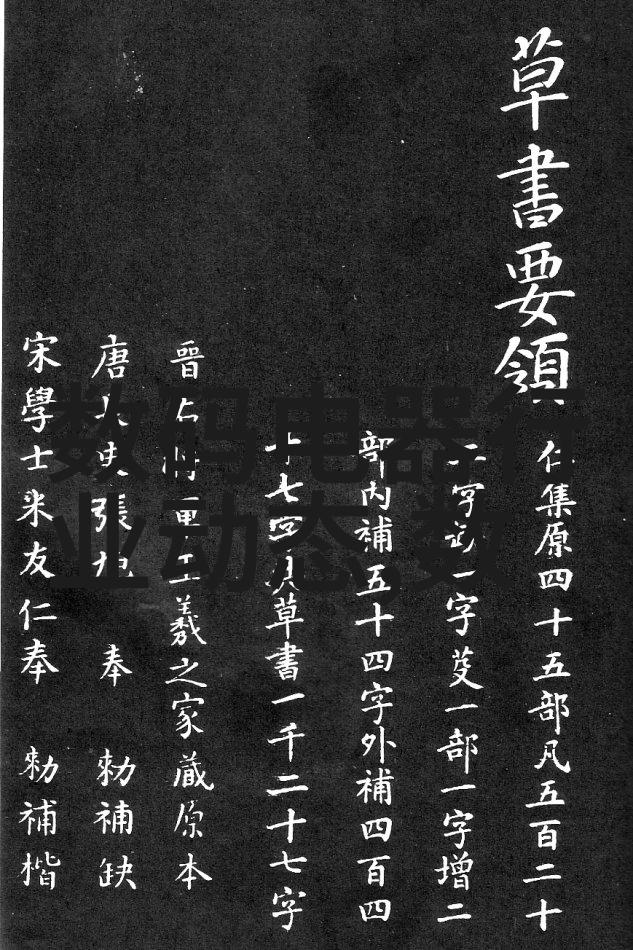 草書要領
仁集原四十五部凡五百二十
二字 一字 一部一字增二
部內補五十四字外補四百四
十七字 草書一千二十七字
晉右將軍王羲之家藏原本
唐長史張旭 奉 勑補缺
宋學士米友仁奉 勑補楷
数码电器行
业动态,数